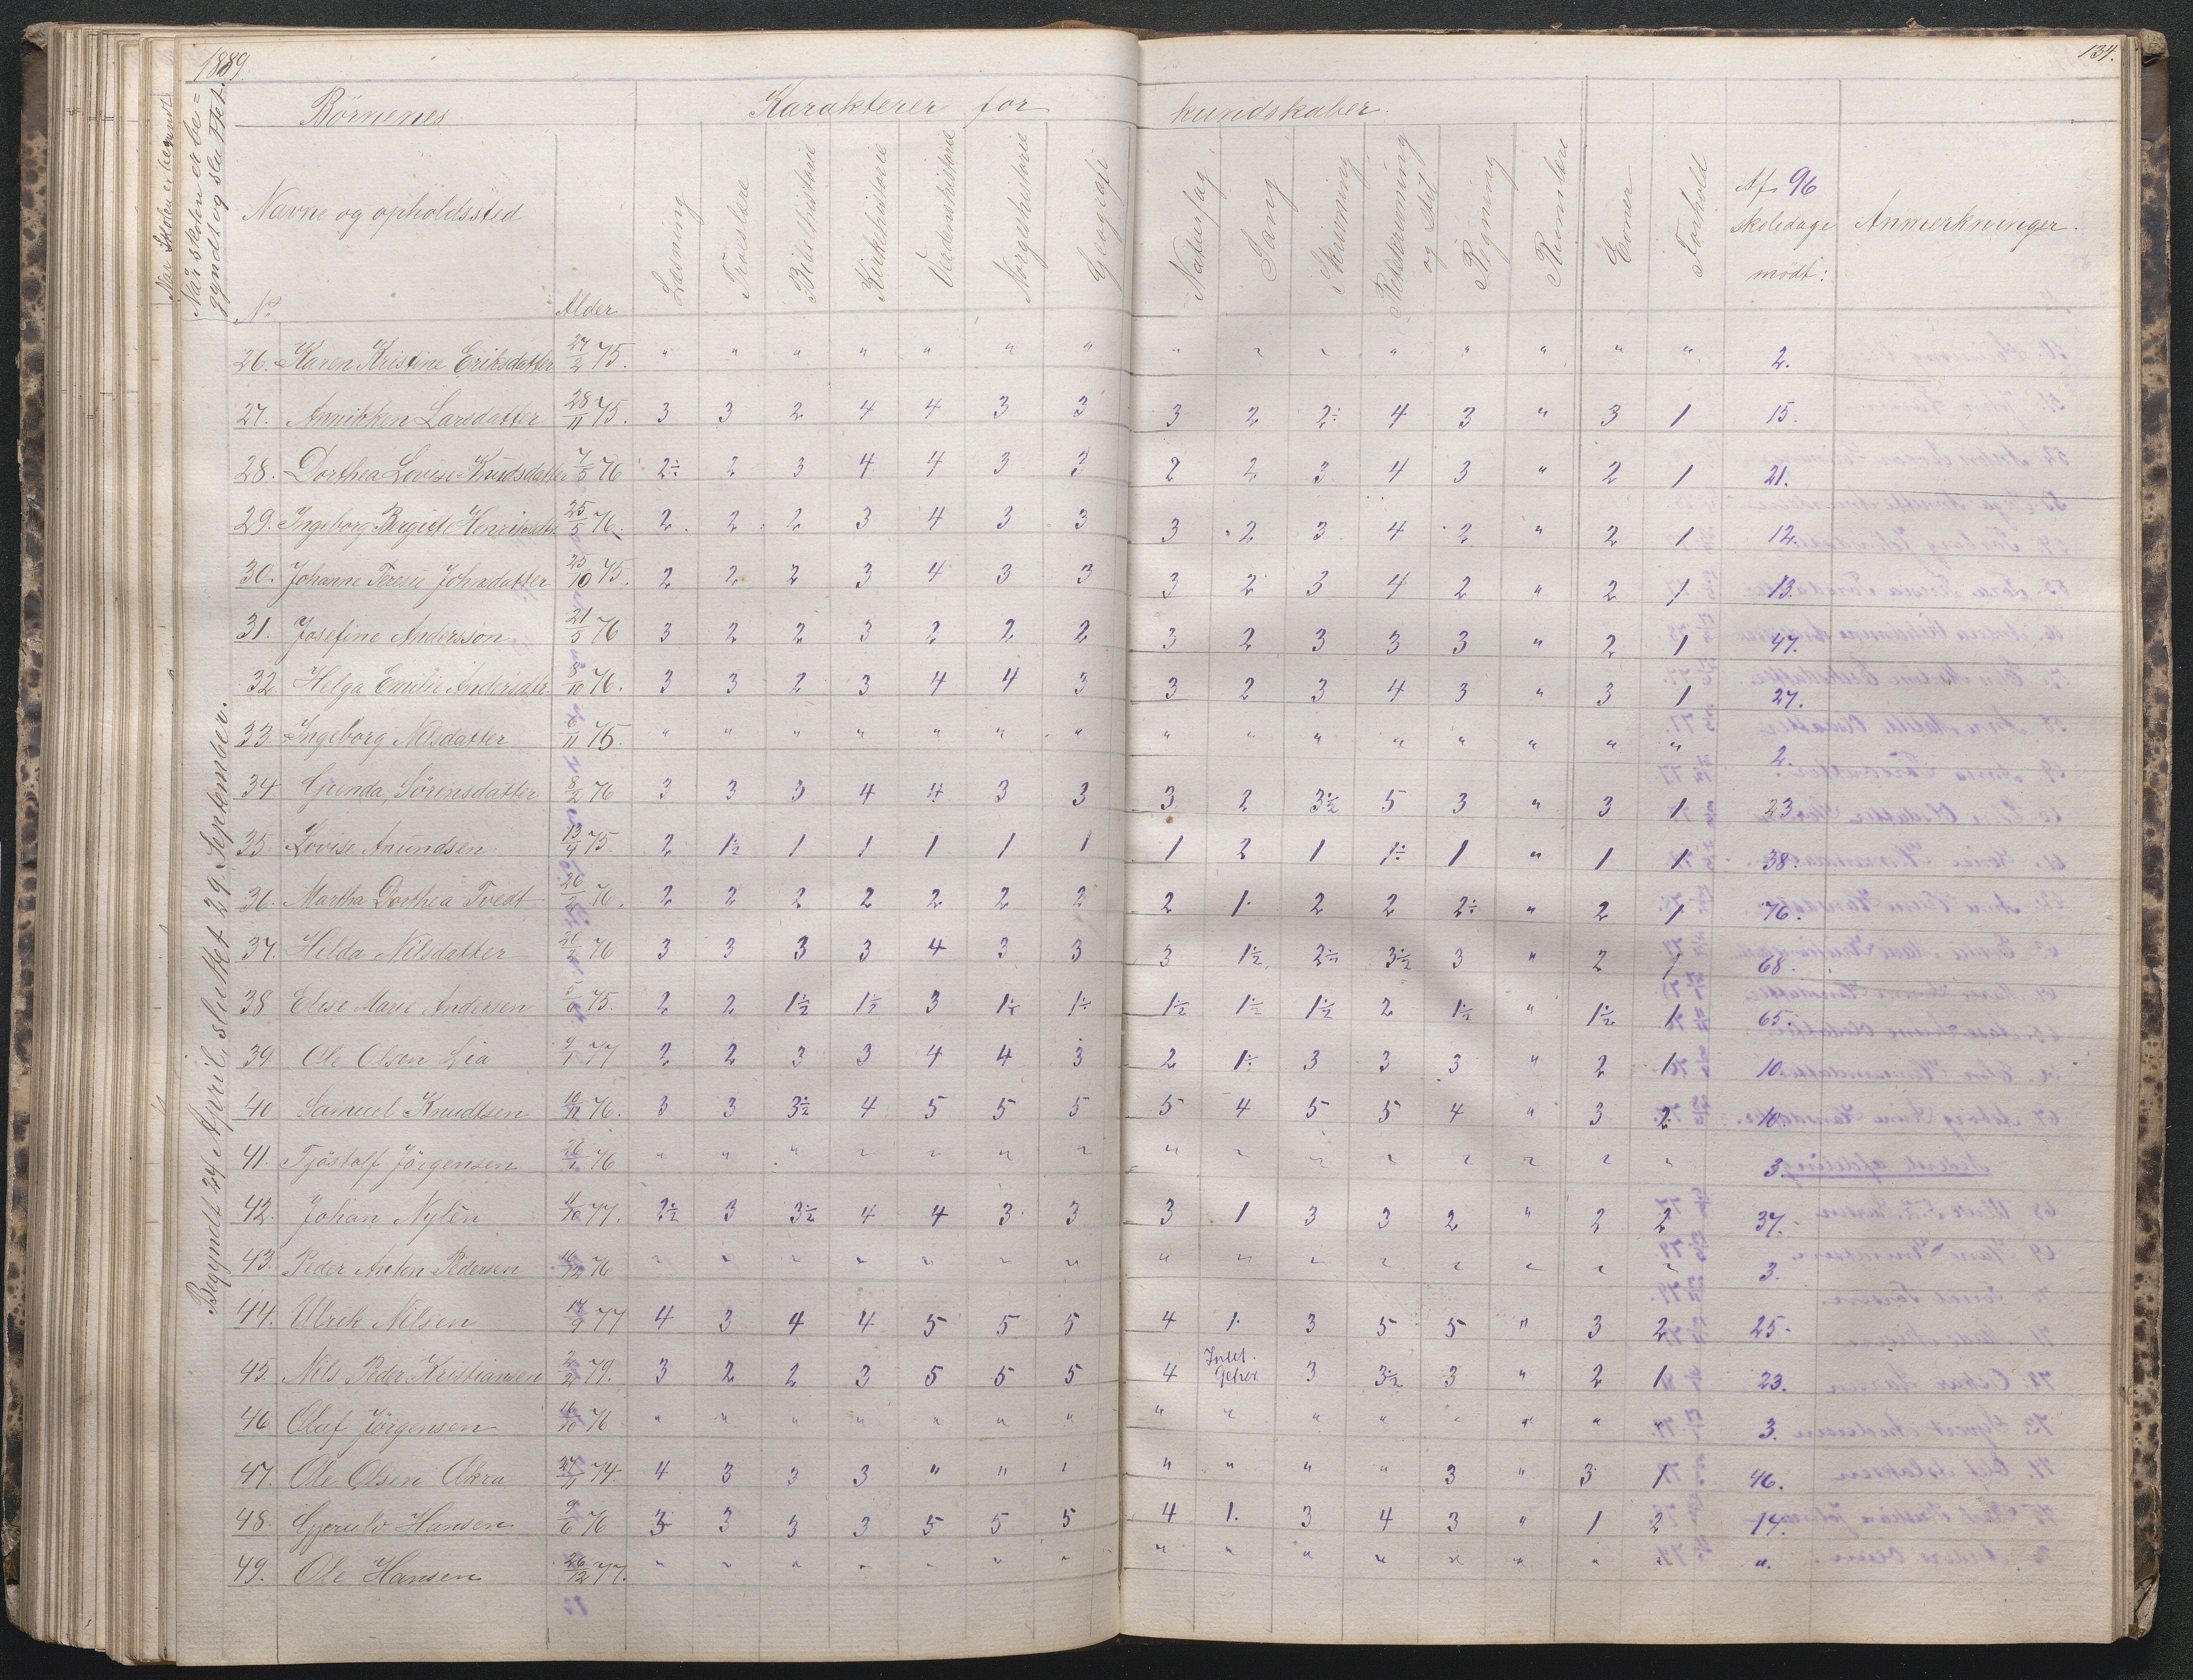 1889.
134.
Børnenes
Karakterer for
kundskaber.
Når skolen er be=
gyndt og sluttet.
Navne og opholdssted
No
Alder
Læsning
Troeslære
Bibelhistorie
Kirkehistorie
Verdenshistorie
Norgeshistorie
Geografi
Naturfag
Sang
Skrivning
Retskrivning
og stil
Regning
Rumlære
Evner
Forhold
Af 96
skoledage
mødt:
Anmerkninger.
Begyndt 24 April, sluttet 29 September.
26. Karen Kristine Eriksdatter 27/2 75. " " " " " " " " " " " " " " " 2.
27. Annikken Larsdatter 28/11 75. 3 3 2 4 4 3 3 3 2 2÷ 4 3 " 3 1 15.
28. Dorthea Lovise Knudsdatter 7/5 76 2÷ 2 3 4 4 3 3 2 2 3 4 3 " 2 1 21.
29. Ingeborg Bergitte 25/5 76. 2 2 2 3 4 3 3 3 2 3 4 2 " 2 1 12.
30. Johanne Teresie Johnsdatter 25/10 75. 2 2 2 3 4 3 3 3 2 3 4 2 " 2 1 13.
31. Josefine Andersson 21/5 76 3 2 2 3 2 2 2 3 2 3 3 3 " 2 1 47.
32. Helga Emilie Andersdtr. 8/10 76. 3 3 2 3 4 4 3 3 2 3 4 3 " 3 1 27.
33. Ingeborg Nilsdatter 6/11 75. " " " " " " " " " " " " " " " 2.
34 Gunda Sørensdatter 8/2 76 3 3 3 4 4 3 3 3 2 3÷2 5 3 " 3 1 23.
35. Lovise Anundsen 13/4 75. 2 1÷2 1 1 1 1 1 1 2 1 1÷ 1 " 1 1 38.
36. Martha Dorthea Tvedt 26/2 76. 2 2 2 2 2 2 2 2 1. 2 2 2÷ " 2 1 76.
37. Hilda Nilsdatter 20/2 76 3 3 3 3 4 3 3 3 1÷2 2÷ 3÷2 3 " 2 1 68.
38 Elise Marie Andersen 75. 2 2 1÷2 1÷2 3 1÷ 1÷ 1÷2 1÷2 1÷2 2 1÷2 " 1÷2 1 65.
39. Ole Olsen Lia 9/1 77 2 2 3 3 4 4 3 2 1÷ 3 3 3 " 2 1 10.
40 Samuel Knudtsen 16/11 76. 3 3 3÷2 4 5 5 5 5 4 5 5 4 " 3 2 10.
41. Tjøstolf Jørgensen 26/1 76 " " " " " " " " " " " " " " " 3.
42. Johan Nylén 11/10 77. 2÷2 3 3÷2 4 4 3 3 3 1 3 3 2 " 2 2 37.
43. Peder Anton Pedersen 16/12 76 " " " " " " " " " " " " " " " 3.
44. Ulrik Nilsen 17/9 77 4 3 4 4 5 5 5 4 1. 3 5 5 " 3 2 25.
45. Nils Peder Kristiansen 2/2 79. 3 2 2 3 5 5 5 4 Intet. Gehør 3 3÷2 3 " 2 1 23.
46 Olaf Jørgensen 16/10 76 " " " " " " " " " " " " " " " 3.
47. Ole Olsen Akra 27/11 74. 4 3 3 3 " " " " " " " 3 " 3 1 46.
48. Gjeruld Hansen 9/6 76 3 3 3 3 5 5 5 4 1. 3 4 3 " 1 2 14.
49. Ole Hansen 26/12 77. " " " " " " " " " " " " " " " ".